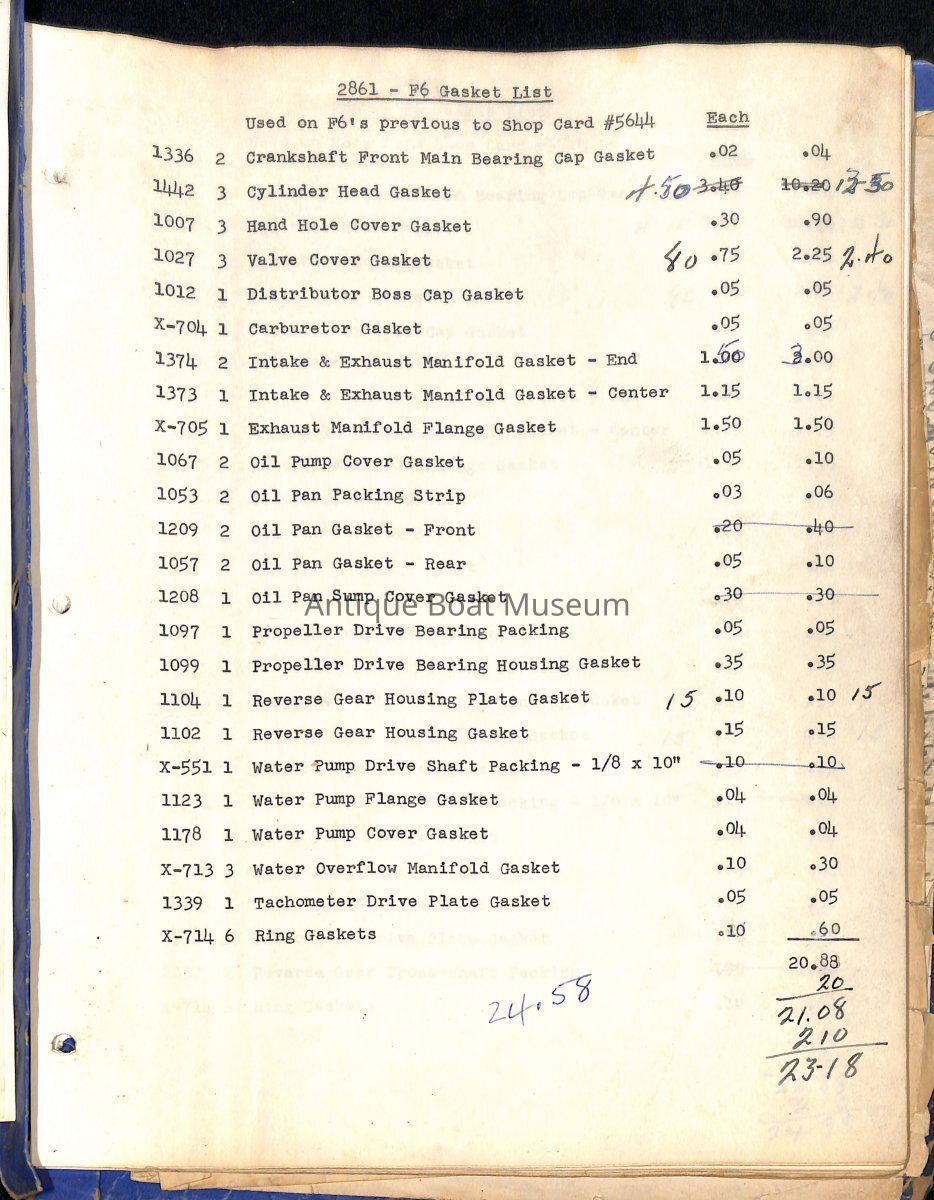 2861 - F6 Gasket List
Used on F6's previous to Shop Card #5644 Each
1336 2 Crankshaft Front Main Bearing Cap Gasket .02 .04
1442 3 Cylinder Head Gasket 4.50 3.40 10.20 13.50
1007 3 Hand Hole Cover Gasket .30 .90
1027 3 Valve Cover Gasket 80 .75 2.25 2.40
1012 1 Distributor Boss Cap Gasket .05 .05
X-704 1 Carburetor Gasket .05 .05
1374 2 Intake & Exhaust Manifold Gasket - End 1.00 50 3.00
1373 1 Intake & Exhaust Manifold Gasket - Center 1.15 1.15
X-705 1 Exhaust Manifold Flange Gasket 1.50 1.50
1067 2 Oil Pump Cover Gasket .05 .10
1053 2 Oil Pan Packing Strip .03 .06
1209 2 Oil Pan Gasket - Front .20 .40
1057 2 Oil Pan Gasket - Rear .05 .10
1208 1 Oil Pan Sump Cover Gasket .30 .30
Antique Boat Museum
1097 1 Propeller Drive Bearing Packing .05 .05
1099 1 Propeller Drive Bearing Housing Gasket .35 .35
1104 1 Reverse Gear Housing Plate Gasket 15 .10 .10 15
1102 1 Reverse Gear Housing Gasket .15 .15
X-551 1 Water Pump Drive Shaft Packing - 1/8 x 10" .10 .10
1123 1 Water Pump Flange Gasket .04 .04
1178 1 Water Pump Cover Gasket .04 .04
X-713 3 Water Overflow Manifold Gasket .10 .30
1339 1 Tachometer Drive Plate Gasket .05 .05
X-714 6 Ring Gaskets .10 .60
20.88
20
24.58 21.08
210
23-18